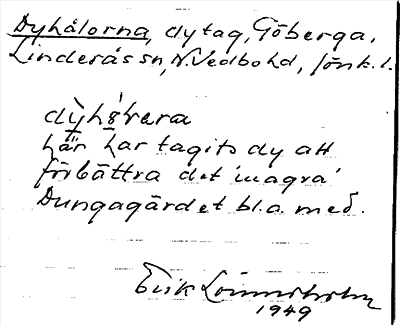 Dyhålorna, dytag, Göberga,
Linderås sn, N. Vedbo hd, Jönk. l.
dỳhò̀ʹrәrna
här har tagits dy att
förbättra det 'magra'
Dungagärdet bl.a. med.
Erik Lönnsholm
1949